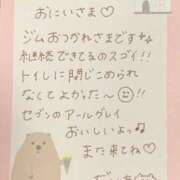 おにいさま♡
ジムおつかれさまです
継続できてるのスゴイ!!
トイレに閉じこめられ
なくてよかった〜!!
セブンのアールグレイ
おいしいよっ♪
また来てね♡